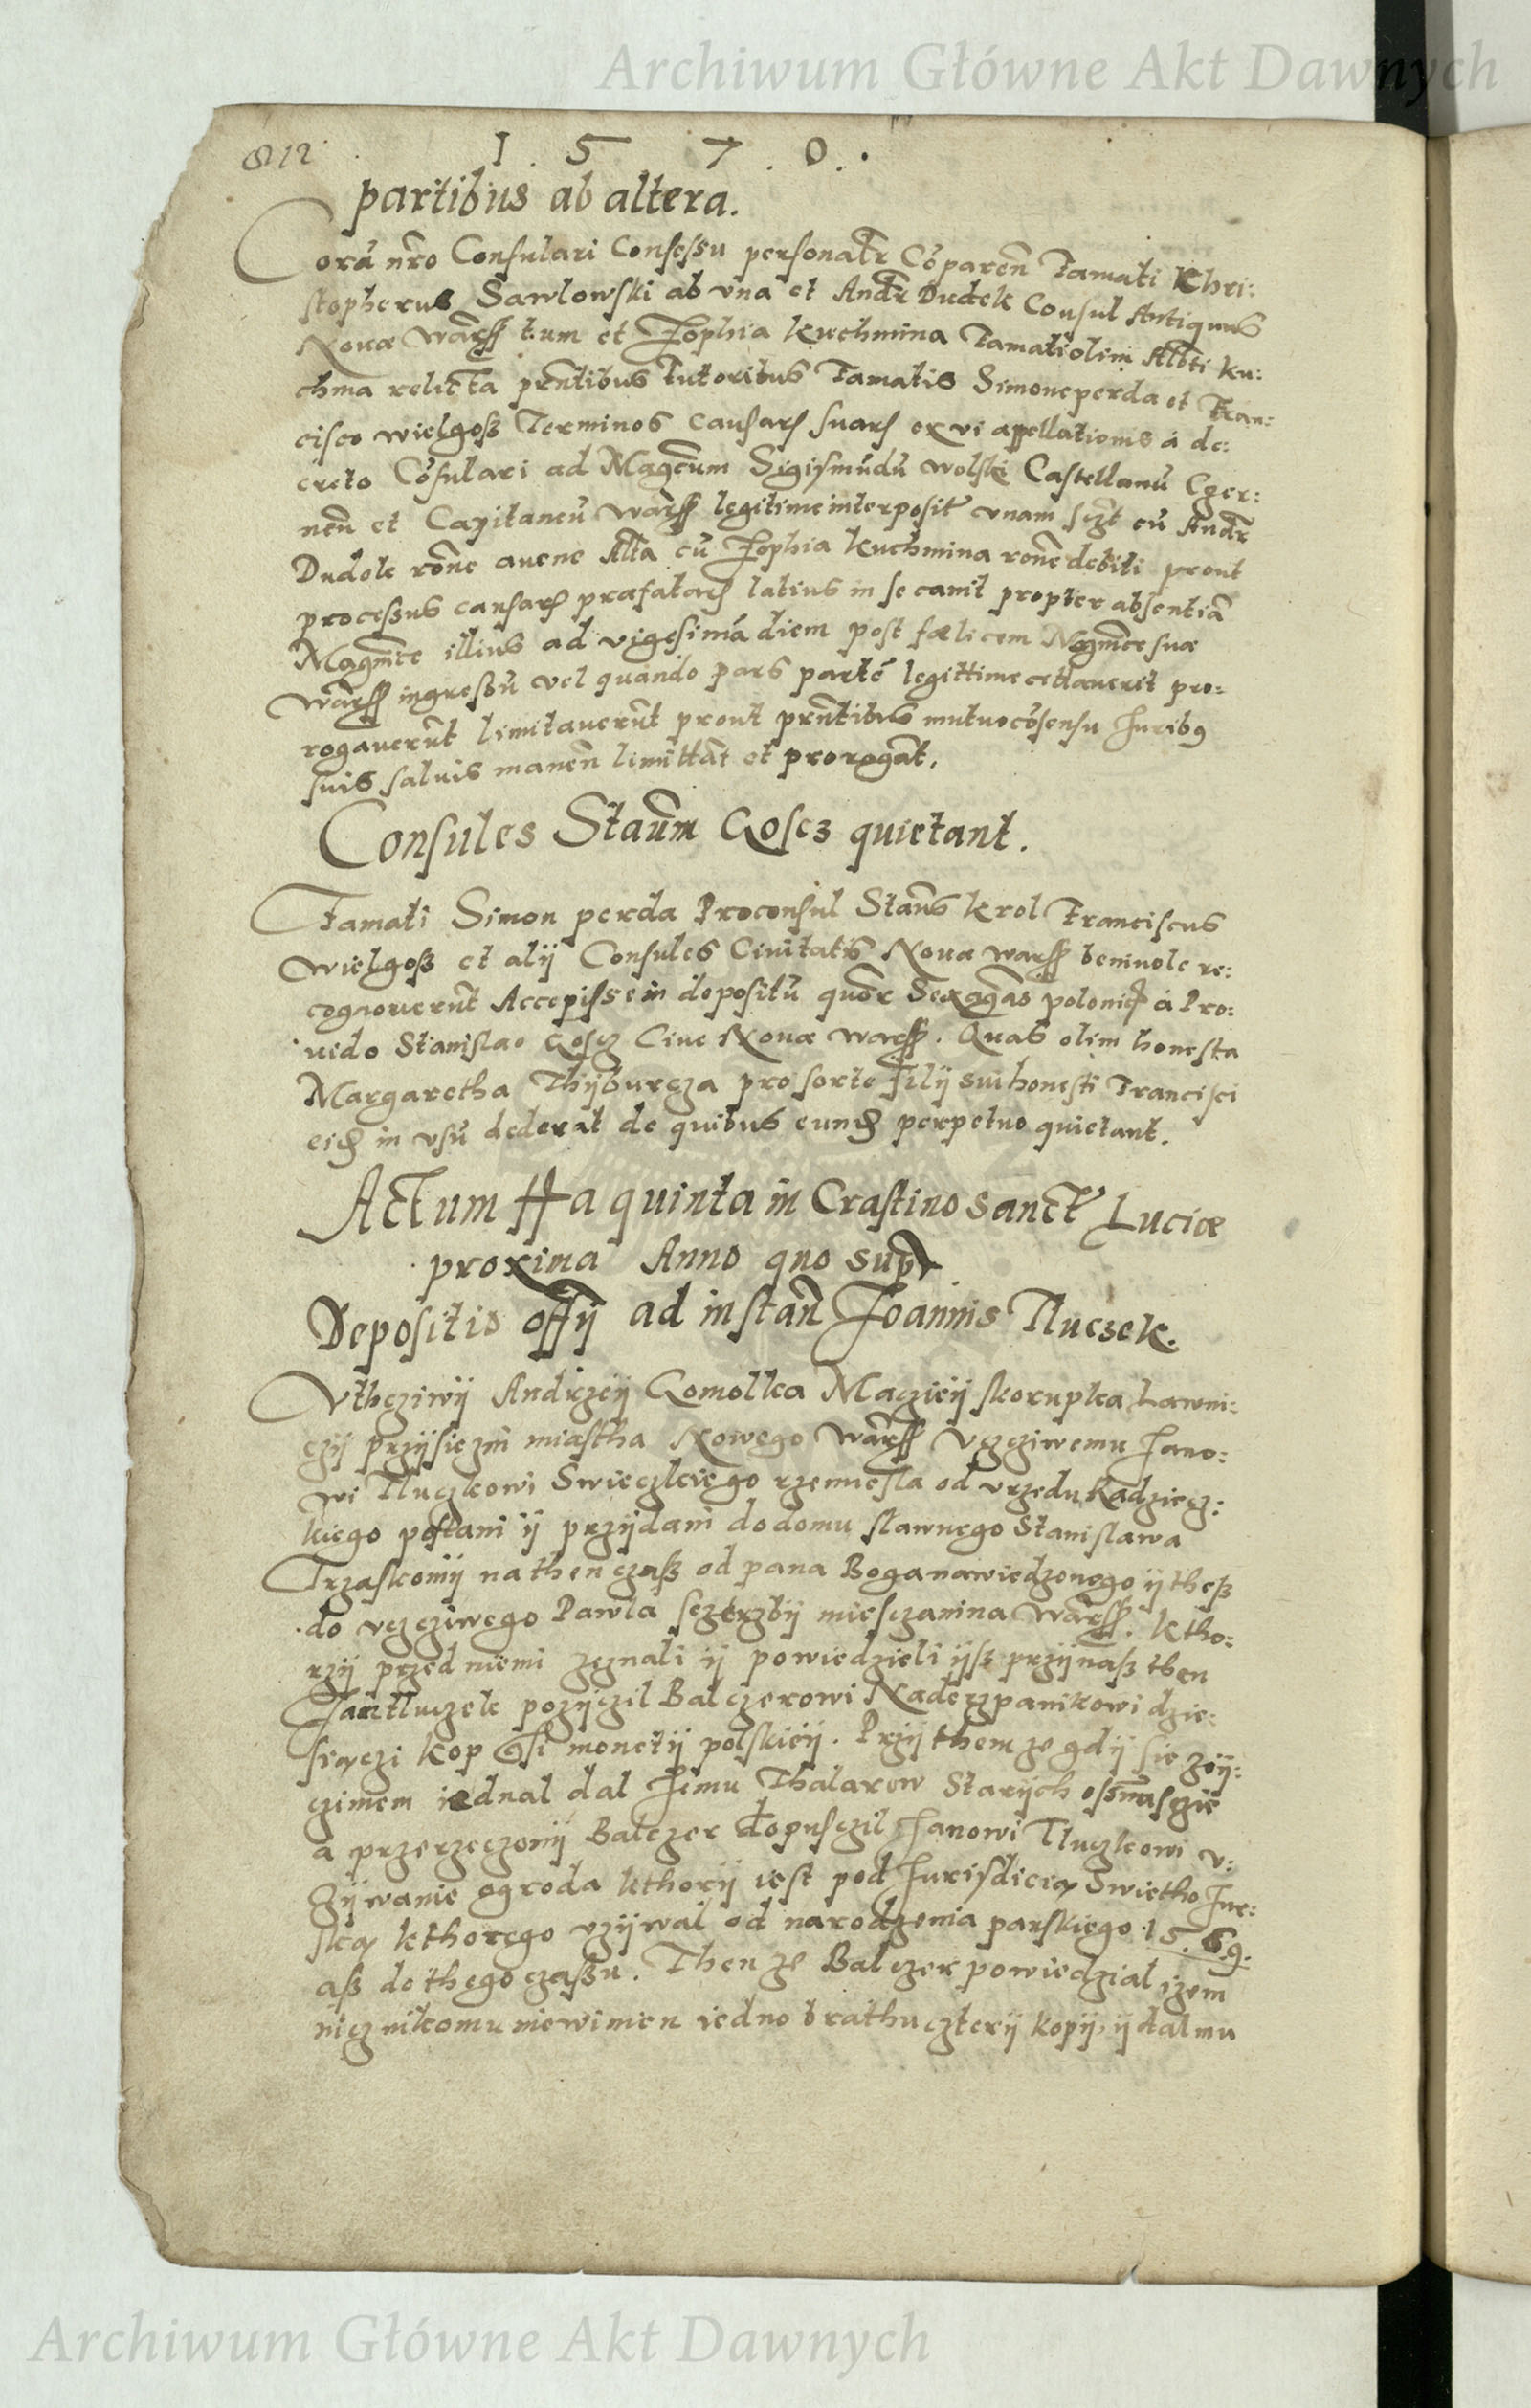 Archiwum Główne Akt Dawnych
812 1 5 7 0
partibus ab altera.
Corā nr̄o Consulari Consessu personalr̄ Cōparen̄ Famati Chri:
stopherus Sawlowski ab vna et Andr̄ Dudek Consul Antiquus
Nouæ Warss̄ tum et Zophia kuchmina Famati olim Alb̄ti ku:
chma relicta pr̄ntibus tutoribus Famatis Simone perda et Fran:
cisco wielgosz Terminos causarꝫ suarꝫ ex vi apellationis á de:
creto Cōsulari ad Magcum̄ Sigismūdū wolski Castellanū Czer:
nen̄ et Capitaneū Warss̄ legitime interposit̄ vnam scz̄t cū Andr̄
Dudek rōne auene Alt̄a cū Zophia kuchmina rōne debiti prout
processus causarꝫ præfatarꝫ latius in se canit propter absentiā
Magnīce illius ad vigesimā diem post fælicem Mgnīce suæ
Warss̄ ingressū vel quando pars partē legittime cittauerit pro:
rogauerūt limitauerūt prout pr̄ntibus mutuo cōsensu Juribꝰ
suis saluis manen̄ limittāt et prorogāt.
Consules Stan̄m Goscz quietant.
Famati Simon perda Proconsul Stan̄s krol Franciscus
wielgosz et alij Consules Ciuitatis Nouæ warss̄ beniuole re:
cognouerūt Accepisse in depositū quōr Sexagēas polonicꝫ á Pro:
uido Stanislao Goscz Ciue Nouæ warss̄. Quas olim honesta
Margaretha Thyburcza pro sorte filij sui honesti Francisci
eidꝫ in vsū dederat de quibus eundꝫ perpetuo quietant.
Actum ffa quinta in Crastino sanct̄ Luciæ
proxima Anno quo supr̄
Depositio offy ad instan̄ Joannis Tluczek.
Vthcziwij Andrzeij Gomolka Maczieij skorupka Lawni:
czij przijsiezn̄i miastha Nowego Warss̄ Vczciwemu Jano:
wi Tluczkowi Swieczkiego rzemiesla od vrzedu Radziecz:
kiego poslani ij przijdani do domu slawnego Stanislawa
Trzaskomij na then czasz od pana Boga nawiedzonego ij thesz
do vczciwego Pawla sczerzbij miesczanina Warss̄. ktho:
rzij przed niemi zeznali ij powiedzieli ijsz przij nasz then
Jan tluczek pozijczil Balczerowi Naderzpanikowi dzie:
siączi kop Gsi monetij polskieij. Prziji them ze gdij sie zeij:
czimem iednal dal Jemu Thalarow Starijch ossm̄nascie
a przerzeczonij Balczer dopusczil Janowi Tluczkowi v:
zijwanie ogroda kthorij iest pod Jurisdicią Swietho Jur:
ską kthorego vzijwal od narodzenia panskiego 1569.
asz do thego czassu. Then ze Balczer powiedzial izem
nicz nikomu niewinien iedno brathu czterij kopij, ij dal mu
Archiwum Główne Akt Dawnych